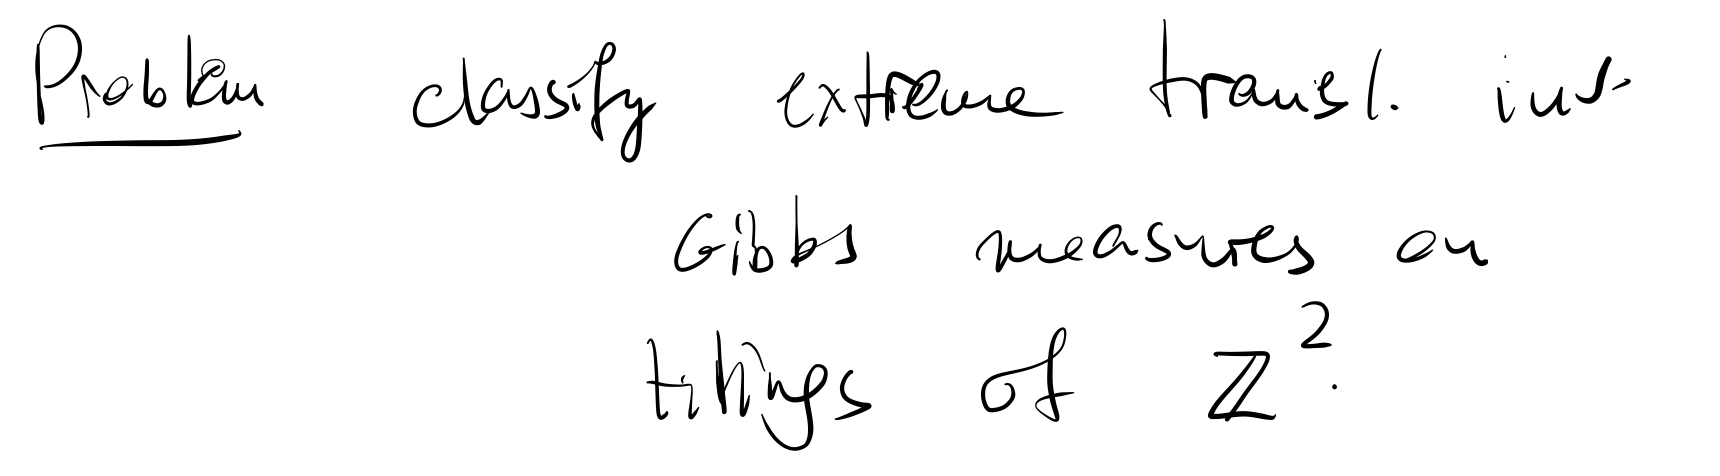 Problem classify extreme transl. inv.
Gibbs measures on
tilings of ℤ².